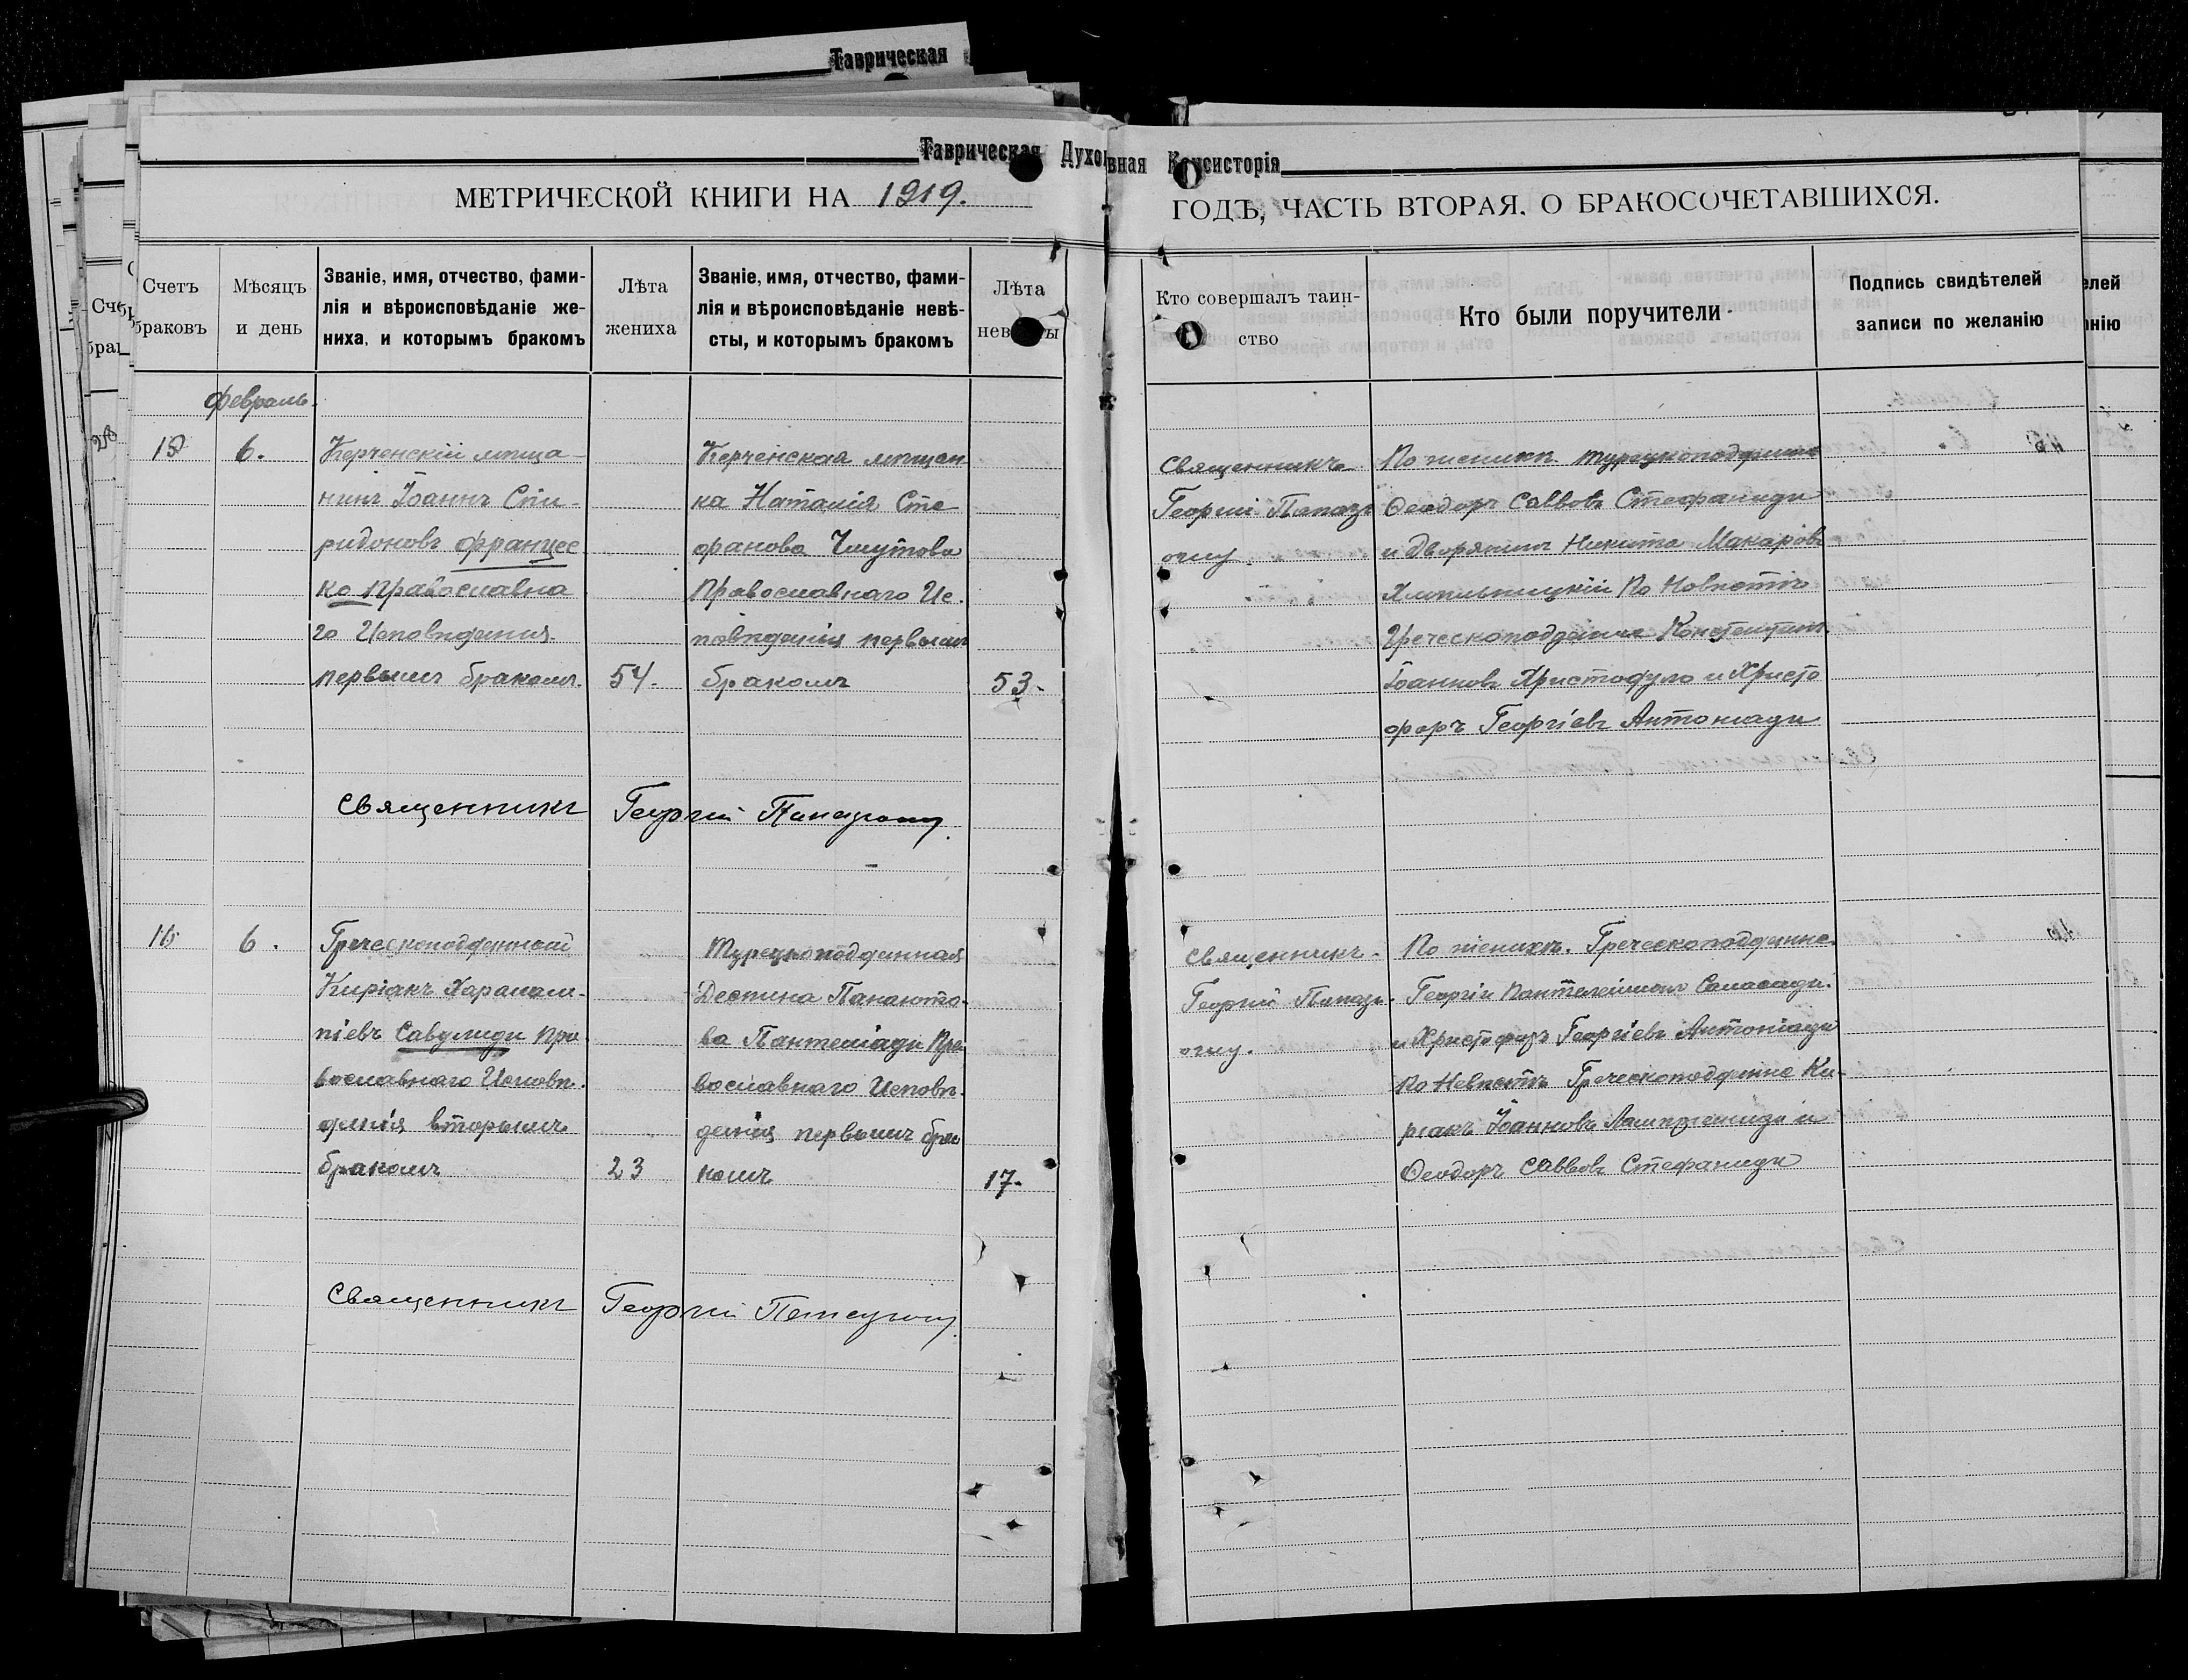 Таврическая
Таврическая Духовная Консисторія
МЕТРИЧЕСКОЙ КНИГИ НА 1919.
ГОДѢ, ЧАСТЬ ВТОРАЯ, О БРАКОСОЧЕТАВШИХСЯ.
Счетъ
браковъ
Мѣсяцъ
и день
Званіе, имя, отчество, фами-
лія и вѣроисповѣданіе же-
ниха, и которымъ бракомъ
Лѣта
жениха
Званіе, имя, отчество, фами-
лія и вѣроисповѣданіе невѣ-
сты, и которымъ бракомъ
Лѣта
невѣсты
Кто совершалъ таин-
ство
Кто были поручители
Подпись свидѣтелей
записи по желанію
февраль.
15
6.
Керченскій мѣща-
нинъ Іоаннъ Спи-
ридоновъ Францес
ко Православна
го Исповѣданія
первымъ бракомъ.
54.
Керченская мѣщан
ка Наталія Сте
фанова
Православнаго Ис.
повѣданія первымъ
бракомъ
53.
Священникъ
Георгій Папазъ
оглу
По женихѣ турецкоподданные
Ѳеодоръ Саввовъ Стефаниди
и дворянинъ Никита Макаровъ
Хмельницкій По Невѣстѣ
Греческоподданные Констентинъ
Іоанновъ Христофуло и Христо
форъ Георгіевъ Антоніади
Священникъ Георгій Папазоглу
16
6.
Греческоподданный
Киріакъ Харалам-
піевъ Савулиди Пра
вославнаго Исповѣ.
данія вторымъ
бракомъ
23
Турецкоподданная
Деспина Панаіото-
ва Пантеліади Пра
вославнаго Исповѣ.
данія первымъ бра
комъ
17.
Священникъ.
Георгій Папазъ.
оглу.
По женихѣ. Греческоподданные
Георгій Пантелеймоновъ
и Христофоръ Георгіевъ Антоніади
По Невѣстѣ Греческоподданные Ки-
ріакъ Іоанновъ и
Ѳеодоръ Саввовъ Стефаниди
Священникъ Георгій Папазоглу.